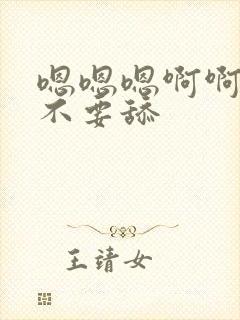 嗯嗯嗯啊啊
不要舔
王靖女